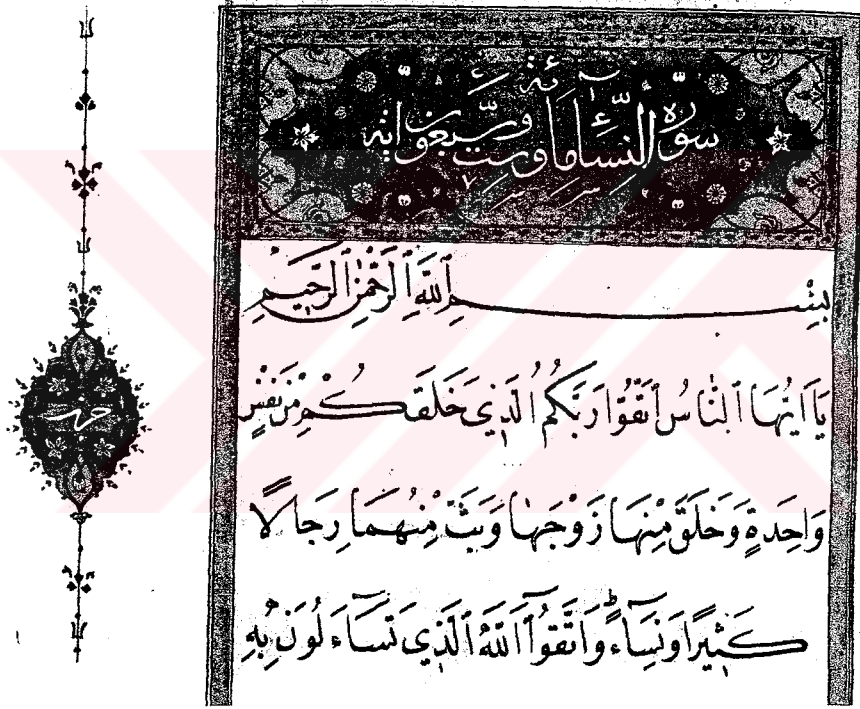 سورة النساء مائة وست وسبعون آية
بِسْمِ ٱللَّهِ ٱلرَّحْمٰنِ ٱلرَّحِيمِ
يَا اَيُّهَا ٱلنَّاسُ ٱتَّقُوا رَبَّكُمُ ٱلَّذِي خَلَقَكُمْ مِنْ نَفْسٍ
وَاحِدَةٍ وَخَلَقَ مِنْهَا زَوْجَهَا وَبَثَّ مِنْهُمَا رِجَالًا
كَثِيرًا وَنِسَآءً وَٱتَّقُوا ٱللَّهَ ٱلَّذِي تَسَآءَلُونَ بِهِ
حزب